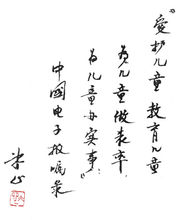 “愛护儿童 教育儿童
为儿童做表率
为儿童办实事”
中國电子报嘱录